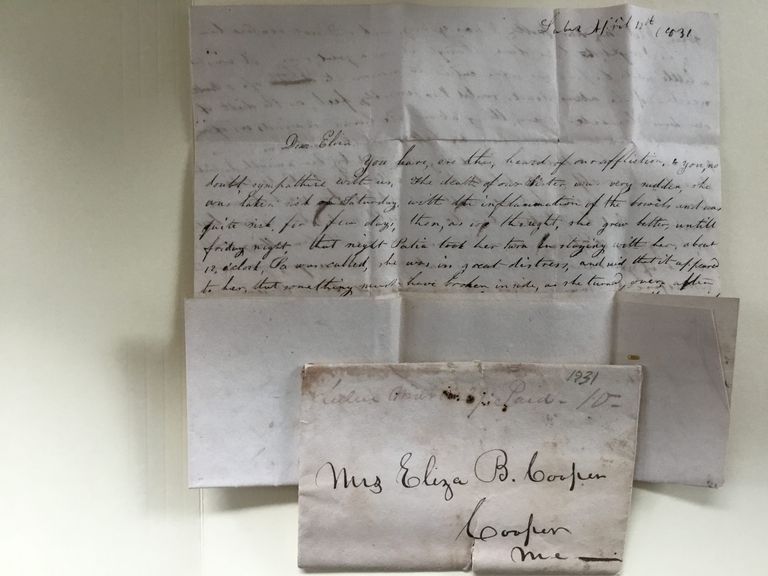 Lubec April 12th 1831
Dear Eliza
You have, ere this, heard of our affliction, & you, no
doubt sympathize with us, The death of our Sister was very sudden, she
was taken sick on Saturday, with the inflammation of the bowels, and was
quite sick, for a few days, then, as we thought, she grew better, untill
friday night that night Patia took her turn in staying with her, about
12, o'clock, Pa was called, she was in great distress, and said that it appeared
to her, that something must have broken inside, as she turned over, after
1831
Paid - 10 -
Mrs Eliza B. Cooper
Cooper
Me